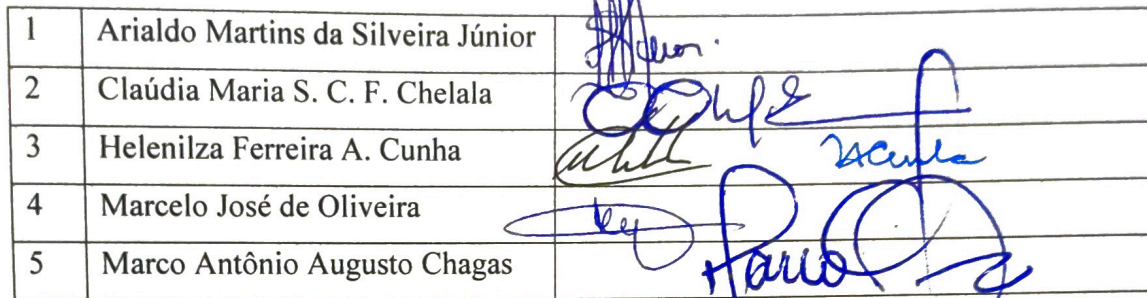 1 Arialdo Martins da Silveira Júnior
2 Claúdia Maria S. C. F. Chelala
3 Helenilza Ferreira A. Cunha
4 Marcelo José de Oliveira
5 Marco Antônio Augusto Chagas